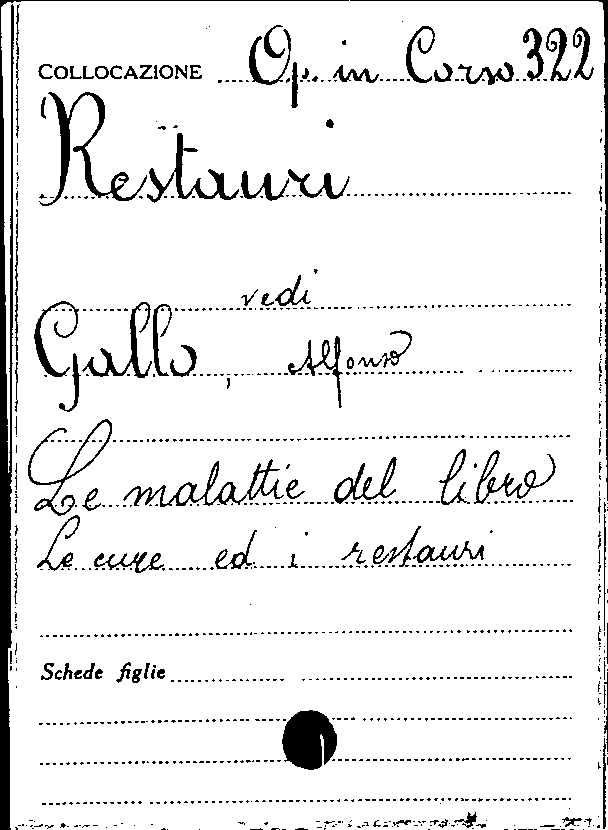 COLLOCAZIONE Op. in Corso 322
Restauri
vedi
Gallo, Alfonso
Le malattie del libro
Le cure ed i restauri
Schede figlie